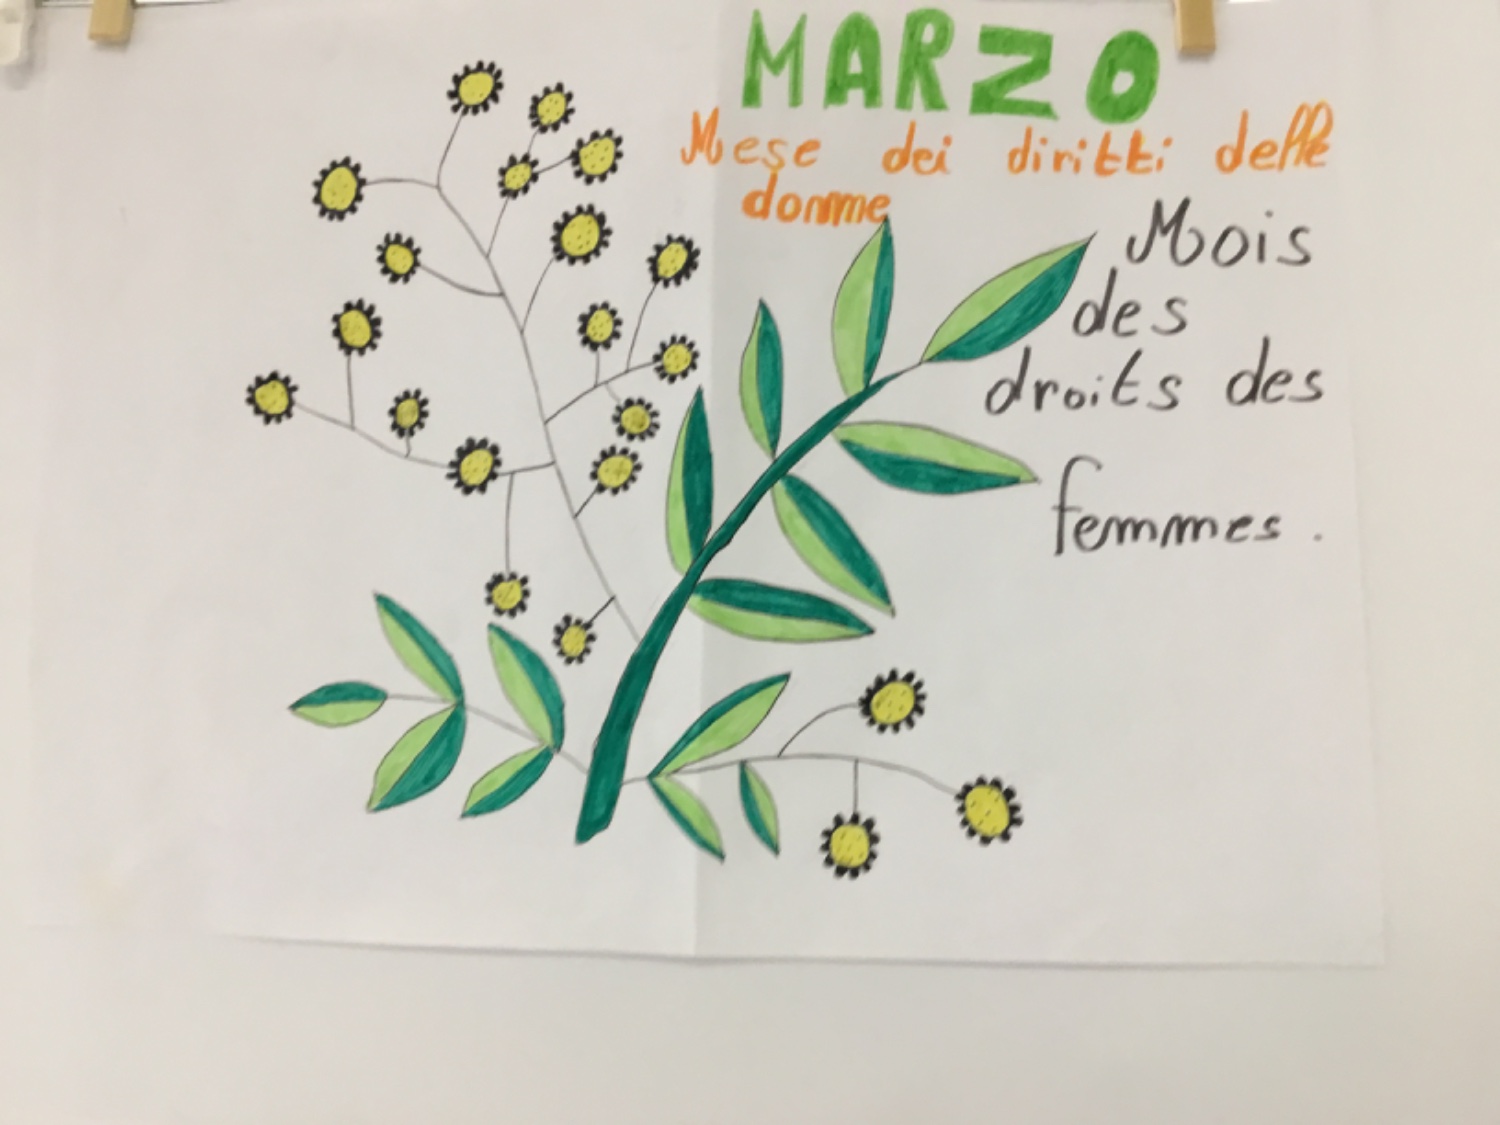 MARZO
Mese dei diritti delle
donne
Mois
des
droits des
femmes.